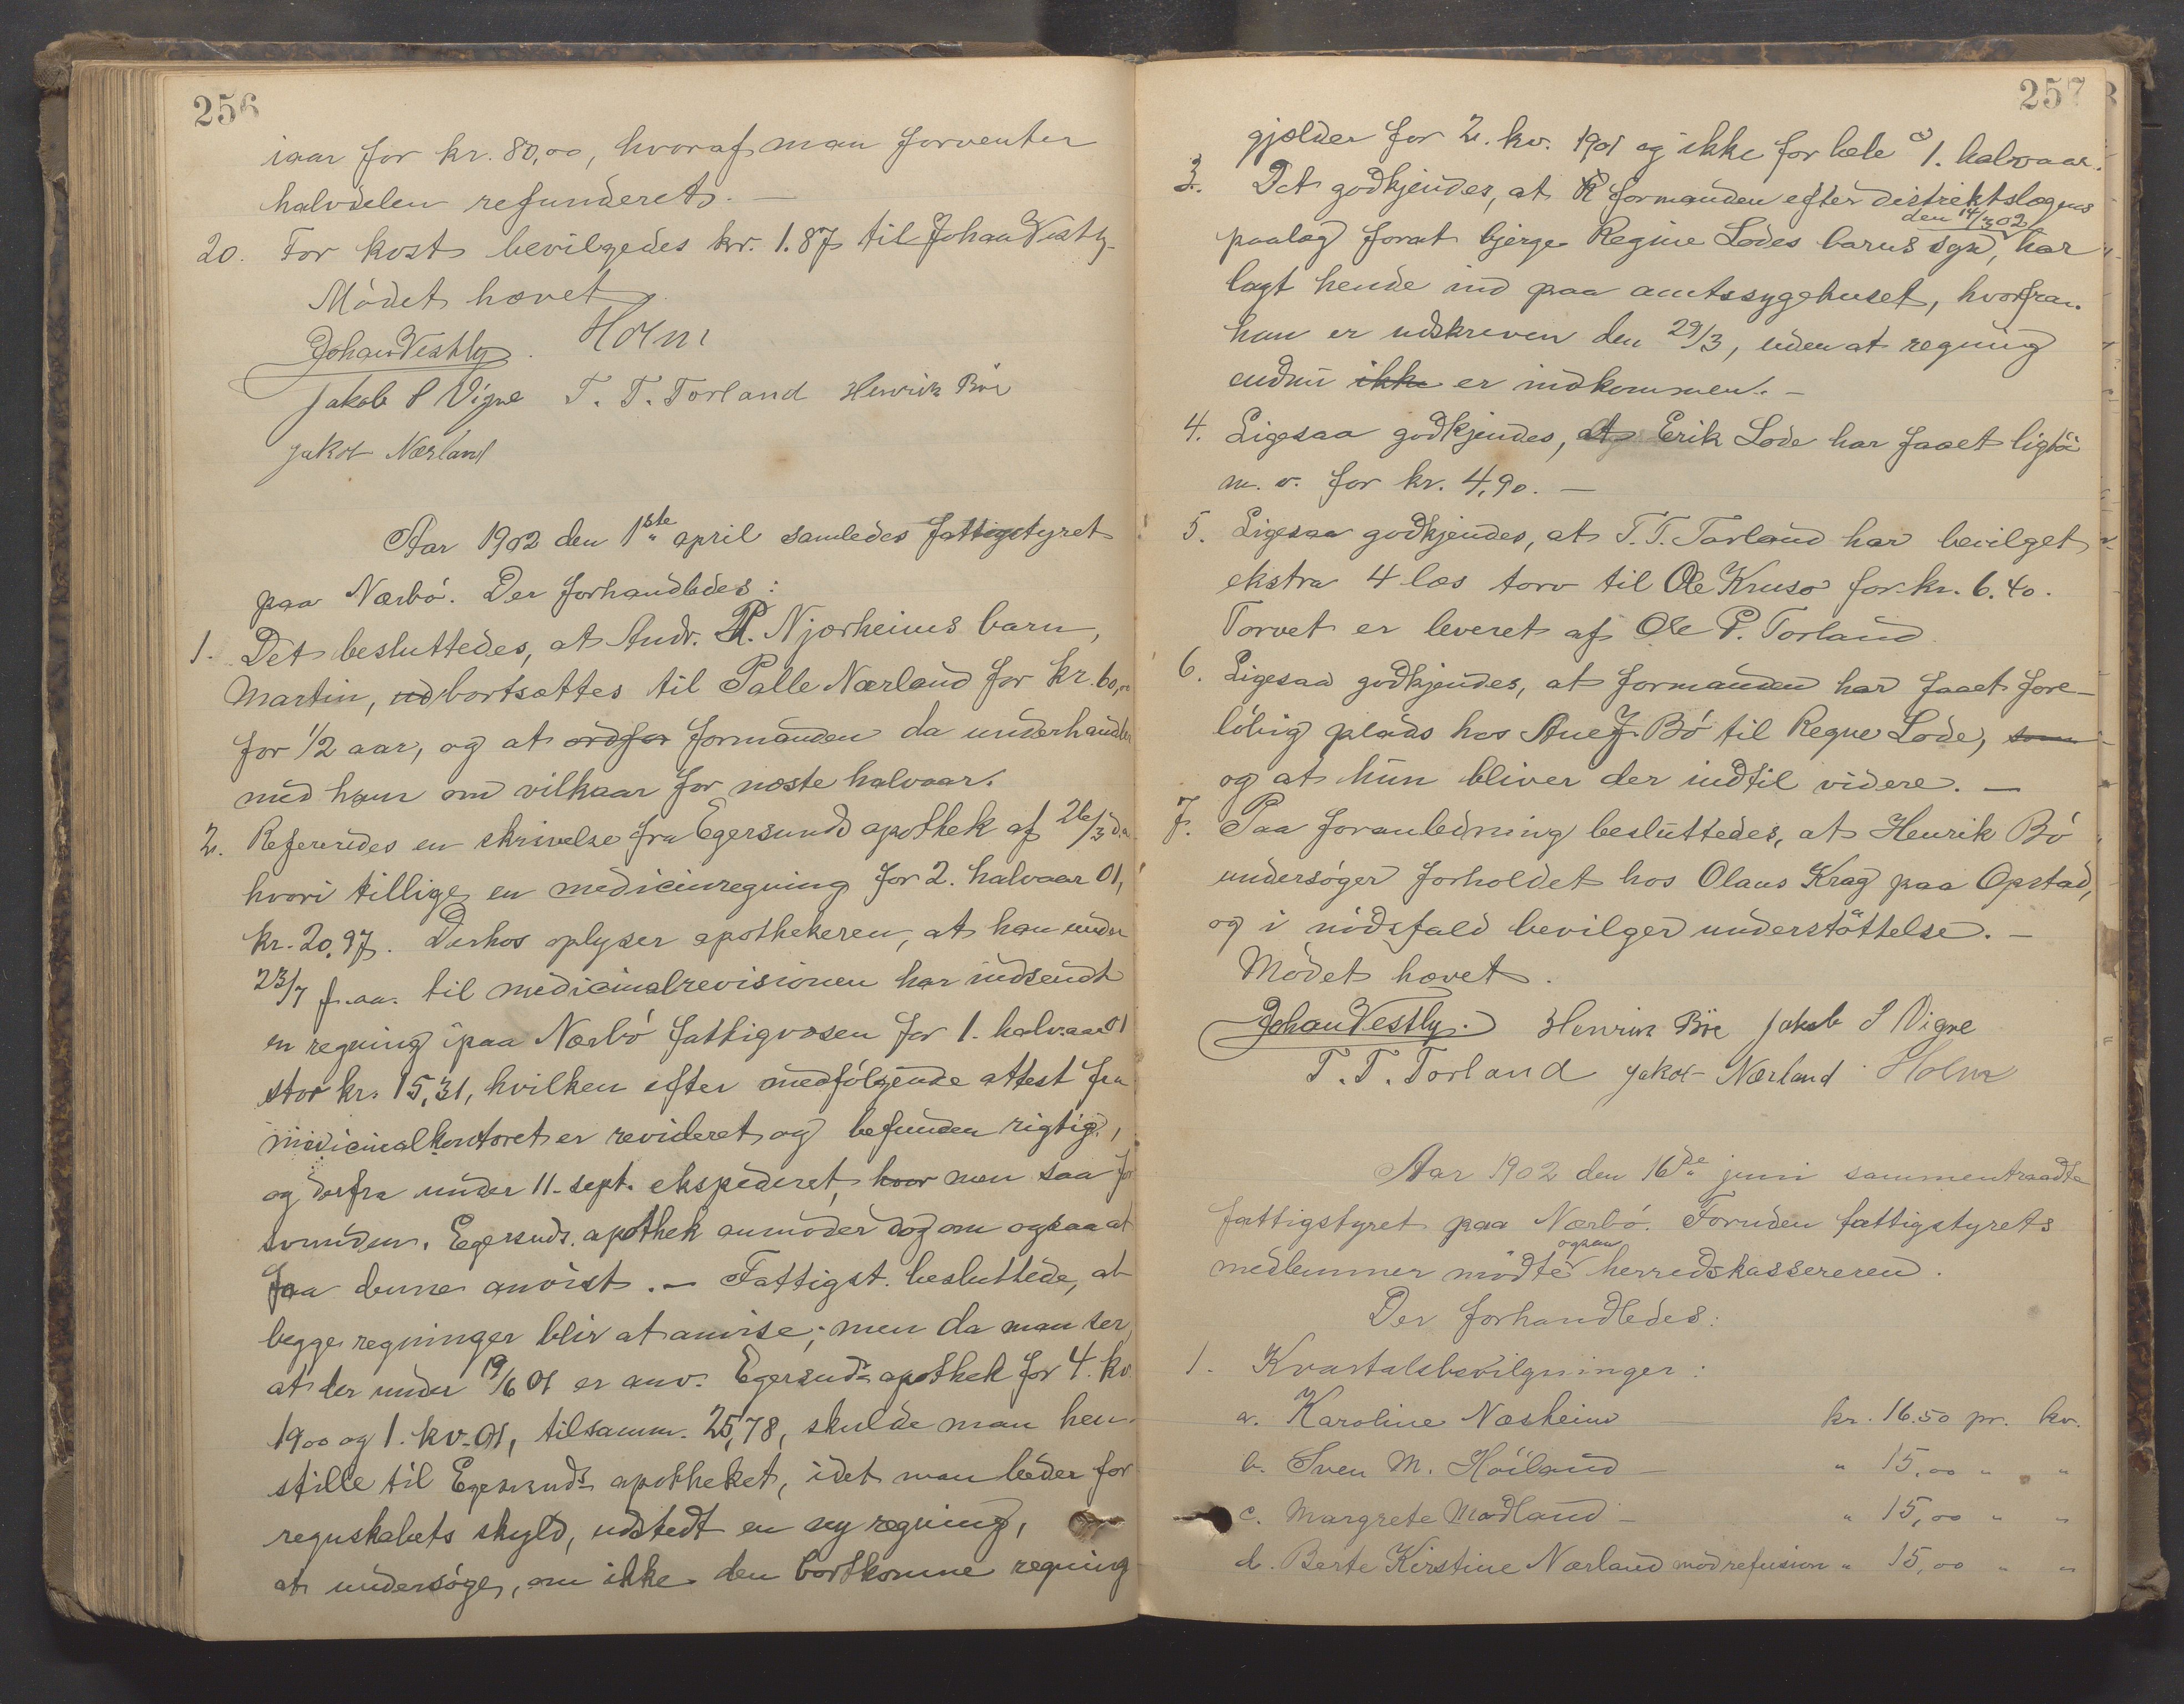 256
iaar for kr. 80,00, hvoraf man forventer
halvdelen refunderet. —
20. For kost bevilgedes kr. 1.87 til Johan Vestly.
Mödet hævet.
Johan Vestly. Holm
Jakob S Vigre T. T. Torland Henrik Böe
Jakob Nærland
Aar 1902 den 1ste april samledes fattigstyret
paa Nærbö. Der forhandledes:
1. Det besluttedes, at Andr. R. Njærheims barn,
Martin, ud bortsættes til Palle Nærland for kr. 60,00
for 1/2 aar, og at ordfør formanden da underhandler
med ham om vilkaar for næste halvaar.
2. Refereredes en skrivelse fra Egersunds apothek af 26/3 d.a.
hvori tillige en medicinregning for 2. halvaar 01,
kr. 20,97. Derhos oplyser apothekeren, at han under
23/7 f. aa. til medicinalrevisionen har indsendt
en regning paa Nærbö fattigvæsen for 1. halvaar 01
stor kr. 15,31, hvilken efter medfölgende attest fra
medicinalkontoret er revideret og befunden rigtig,
og derfra under 11. sept. ekspederet, hvor men saa for
svunden. Egersunds apothek anmoder dog om ogsaa at
faa denne anvist. — Fattigst. besluttede, at
begge regninger blir at anvise; men da man ser,
at der under 19/6 01 er anv. Egersunds apothek for 4. kv.
1900 og 1. kv. 01, tilsamm. 25,78, skulde man hen-
stille til Egersunds apotheket, idet man beder for
regnskabets skyld, udstedt en ny regning,
at undersöge, om ikke den bortkomne regning
257
gjælder for 2. kv. 1901 og ikke for hele 1. halvaar.
3. Det godkjendes, at R formanden efter distriktslægens
den 14/3 02
paalag forat bjerge Regine Lodes barns syn, har
lagt hende ind paa amtssygehuset, hvorfra
hun er udskreven den 29/3, uden at regning
endnu ikke er indkommen. —
4. Ligesaa godkjendes, at Erik Lode har faaet ligtöi
m. v. for kr. 4,90. —
5. Ligesaa godkjendes, at T. T. Torland har bevilget
ekstra 4 læs torv til Ole Kruse for kr. 6.40.
Torvet er leveret af Ole P. Torland
6. Ligesaa godkjendes, at formanden har faaet fore-
löbig plads hos Ane J. Bö til Regne Lode, som
og at hun bliver der indtil videre. —
7. Paa foranledning besluttedes, at Henrik Bö
undersöger forholdet hos Olaus Krag paa Opstad,
og i nödsfald bevilger understöttelse. —
Mödet hævet.
Johan Vestly. Henrik Böe Jakob S Vigre
T. T. Torland Jakob Nærland Holm
Aar 1902 den 16de juni sammentraadte
fattigstyret paa Nærbö. Foruden fattigstyrets
ogsaa
medlemmer mödte herredskassereren.
Der forhandledes:
1. Kvartalsbevilgninger:
a. Karoline Næsheim kr. 16.50 pr. kv.
b. Sven M. Höiland — " 15,00 " "
c. Margrete Modland — " 15,00 " "
d. Berte Kirstine Nærland mod refusion " 15,00 " "